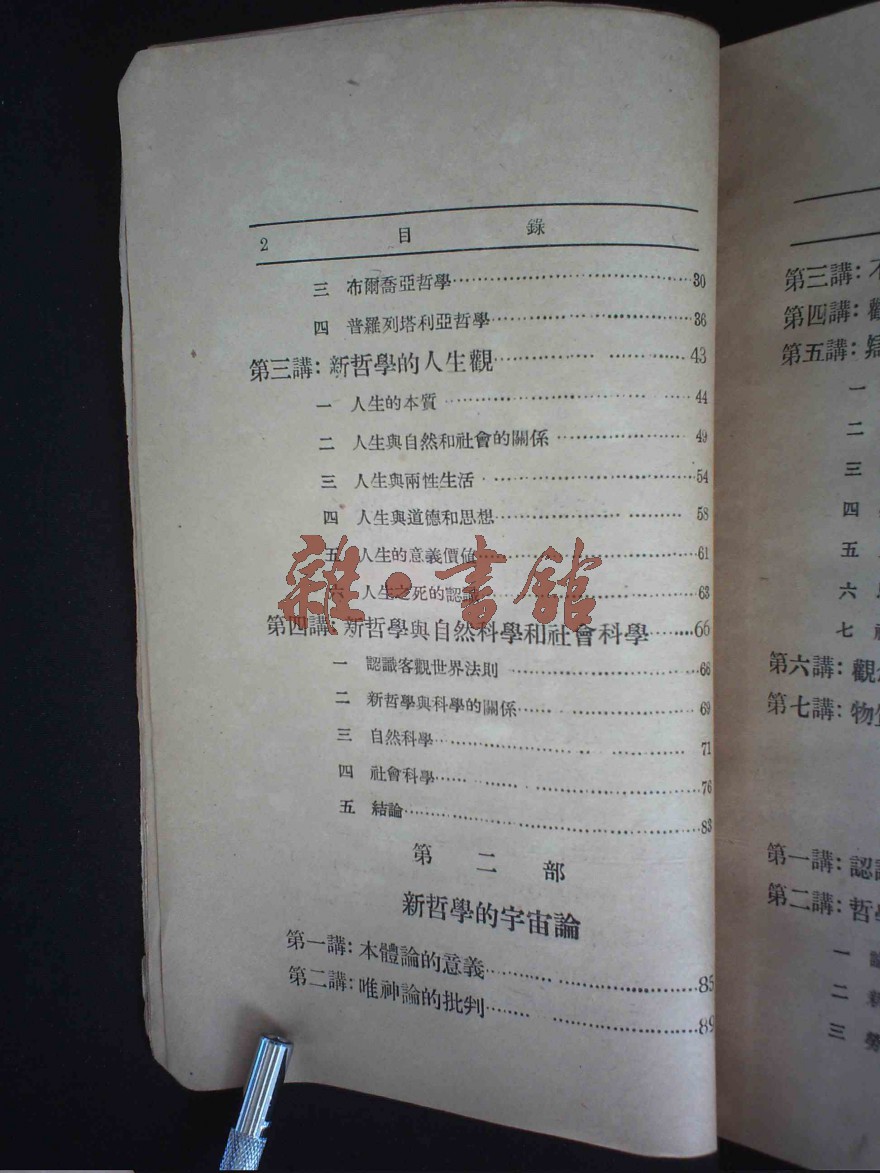 2 目錄
三 布爾喬亞哲學 30
四 普羅列塔利亞哲學 36
第三講：新哲學的人生觀 43
一 人生的本質 44
二 人生與自然和社會的關係 49
三 人生與兩性生活 54
四 人生與道德和思想 58
五 人生的意義價值 61
六 人生之死的認識 63
第四講：新哲學與自然科學和社會科學 66
一 認識客觀世界法則 66
二 新哲學與科學的關係 69
三 自然科學 71
四 社會科學 76
五 結論 83
第二部
新哲學的宇宙論
第一講：本體論的意義 85
第二講：唯神論的批判 89
雜·書館
第三講：不
第四講：觀
第五講：
一
二
三
四
五
六
七
第六講：觀
第七講：物
第一講：認
第二講：哲
一
二
三